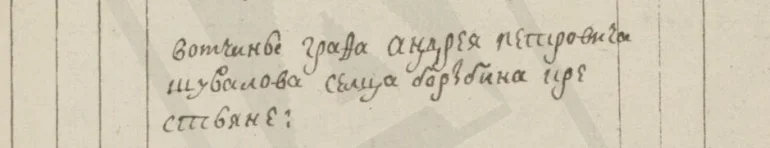 вотчинѣ графа андрея петровича
шувалова селца борѣбина кре
стьяне: